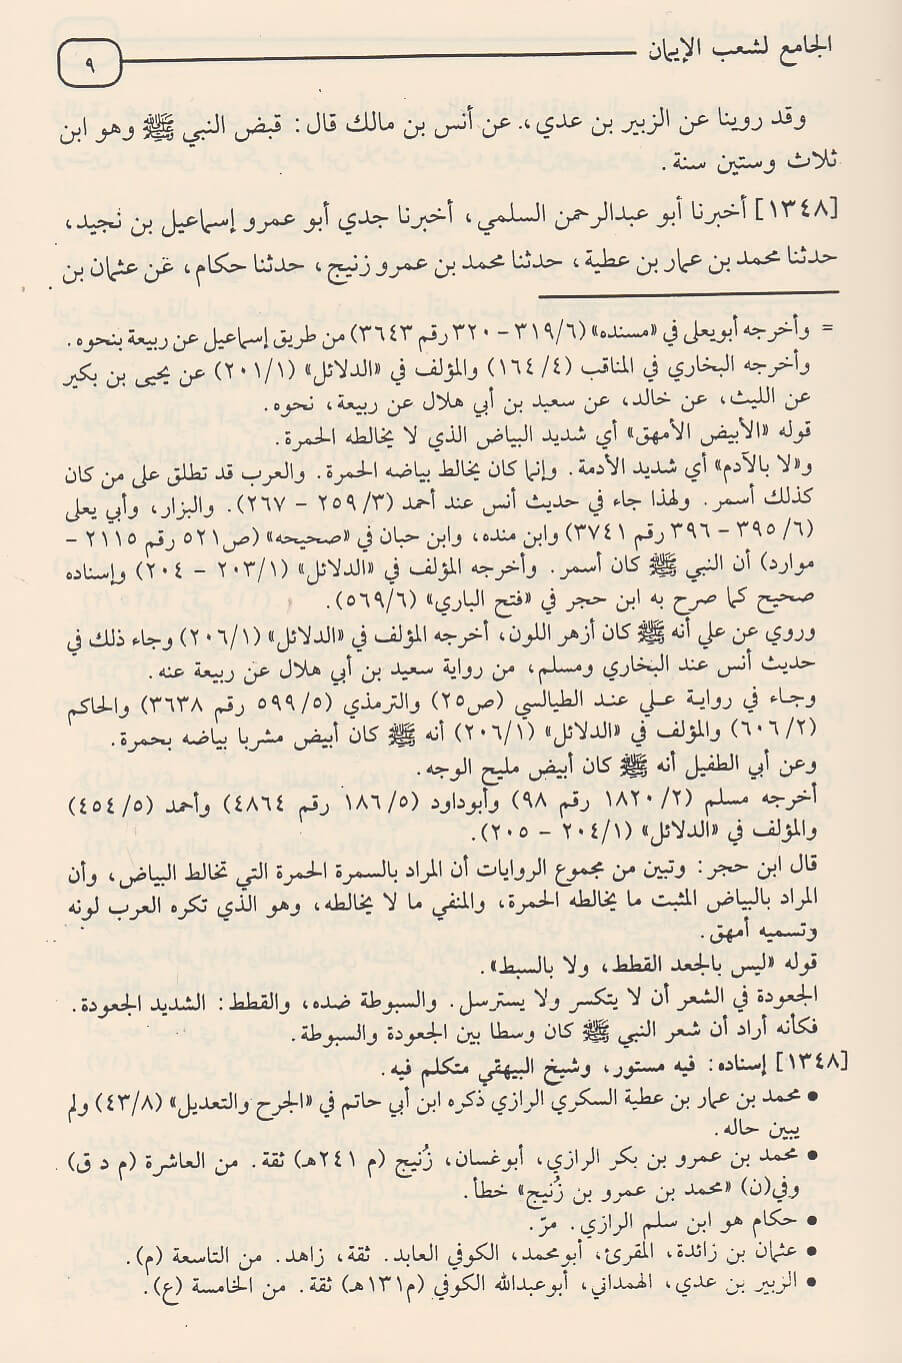 الجامع لشعب الإيمان
٩
وقد روينا عن الزبير بن عدي، عن أنس بن مالك قال: قبض النبي ﷺ وهو ابن
ثلاث وستين سنة.
[١٣٤٨] أخبرنا أبو عبدالرحمن السلمي، أخبرنا جدي أبو عمرو إسماعيل بن نجيد،
حدثنا محمد بن عمار بن عطية، حدثنا محمد بن عمرو زنيج، حدثنا حكام، عن عثمان بن
= وأخرجه أبويعلى في «مسنده» (٣١٩/٦ - ٣٢٠ رقم ٣٦٤٣) من طريق إسماعيل عن ربيعة بنحوه.
وأخرجه البخاري في المناقب (١٦٤/٤) والمؤلف في «الدلائل» (٢٠١/١) عن يحيى بن بكير
عن الليث، عن خالد، عن سعيد بن أبي هلال عن ربيعة، نحوه.
قوله «الأبيض الأمهق» أي شديد البياض الذي لا يخالطه الحمرة.
و«لا بالآدم» أي شديد الأدمة. وإنما كان يخالط بياضه الحمرة. والعرب قد تطلق على من كان
كذلك أسمر. ولهذا جاء في حديث أنس عند أحمد (٢٥٩/٣ - ٢٦٧). والبزار، وأبي يعلى
(٣٩٥/٦ - ٣٩٦ رقم ٣٧٤١) وابن منده، وابن حبان في «صحيحه» (ص٥٢١ رقم ٢١١٥ -
موارد) أن النبي ﷺ كان أسمر. وأخرجه المؤلف في «الدلائل» (٢٠٣/١ - ٢٠٤) وإسناده
صحيح كما صرح به ابن حجر في «فتح الباري» (٥٦٩/٦).
وروي عن علي أنه ﷺ كان أزهر اللون، أخرجه المؤلف في «الدلائل» (٢٠٦/١) وجاء ذلك في
حديث أنس عند البخاري ومسلم، من رواية سعيد بن أبي هلال عن ربيعة عنه.
وجاء في رواية علي عند الطيالسي (ص٢٥) والترمذي (٥٩٩/٥ رقم ٣٦٣٨) والحاكم
(٦٠٦/٢) والمؤلف في «الدلائل» (٢٠٦/١) أنه ﷺ كان أبيض مشربا بياضه بحمرة.
وعن أبي الطفيل أنه ﷺ كان أبيض مليح الوجه.
أخرجه مسلم (١٨٢٠/٢ رقم ٩٨) وأبوداود (١٨٦/٥ رقم ٤٨٦٤) وأحمد (٤٥٤/٥)
والمؤلف في «الدلائل» (٢٠٤/١ - ٢٠٥).
قال ابن حجر: وتبين من مجموع الروايات أن المراد بالسمرة الحمرة التي تخالط البياض، وأن
المراد بالبياض المثبت ما يخالطه الحمرة، والمنفي ما لا يخالطه، وهو الذي تكره العرب لونه
وتسميه أمهق.
قوله «ليس بالجعد القطط، ولا بالسبط».
الجعودة في الشعر أن لا يتكسر ولا يسترسل. والسبوطة ضده، والقطط: الشديد الجعودة.
فكأنه أراد أن شعر النبي ﷺ كان وسطا بين الجعودة والسبوطة.
[١٣٤٨] إسناده: فيه مستور، وشيخ البيهقي متكلم فيه.
• محمد بن عمار بن عطية السكري الرازي ذكره ابن أبي حاتم في «الجرح والتعديل» (٤٣/٨) ولم
يبين حاله.
• محمد بن عمرو بن بكر الرازي، أبوغسان، زُنيج (م ٢٤١هـ) ثقة. من العاشرة (م د ق)
وفي(ن) «محمد بن عمرو بن زُنيج» خطأ.
• حكام هو ابن سلم الرازي. مرّ.
• عثمان بن زائدة، المقرئ، أبومحمد، الكوفي العابد. ثقة، زاهد. من التاسعة (م).
• الزبير بن عدي، الهمداني، أبوعبدالله الكوفي (م١٣١هـ) ثقة. من الخامسة (ع).